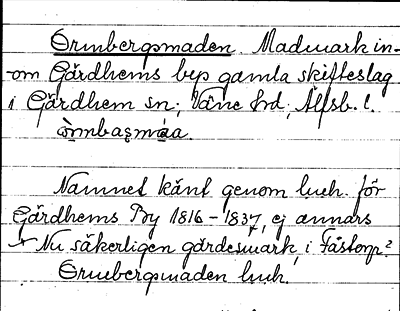 Ormbergsmaden Madmark in-
-om Gärdhems bys gamla skifteslag
i Gärdhem sn; Väne hrd; Älfsb. l.
òrmbasmáa.
Namnet känt genom luch. för
Gärdhems By 1816-1837, ej annars
Nu säkerligen gärdesmark, i Fästorp?
Ormbergsmaden luch.